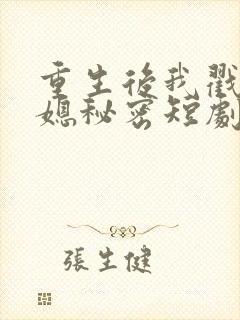 重生後我戳
媳秘密短劇
張生健